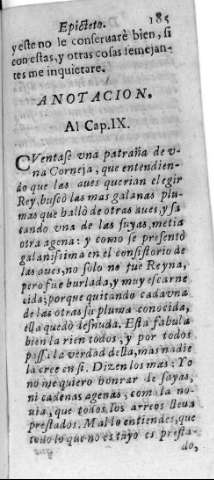 Epicteto. 185
y este no le conseruarè bien, si
con estas, y otras cosas semejan-
tes me inquietare.
ANOTACION.
Al Cap. IX.
CVentase vna patraña de v-
na Corneja, que entendien-
do que las aues querian elegir
Rey, buscò las mas galanas plu-
mas que hallò de otras aues, y sa
cando vna de las suyas, metia
otra agena: y como se presentò
galanissima en el consistorio de
las aues, no solo no fue Reyna,
pero fue burlada, y muy escarne
cida; porque quitando cada vna
de las otras su pluma conocida,
ella quedò desnuda. Esta fabula
bien la rien todos, y por todos
passa la verdad della, mas nadie
la cree en si. Dizen los mas: Yo
no me quiero honrar de sayas,
ni cadenas agenas, como la no-
uia, que todos los arreos lleua
prestados. Mal lo entiendes, que
todo lo que no es tuyo es presta-
do,